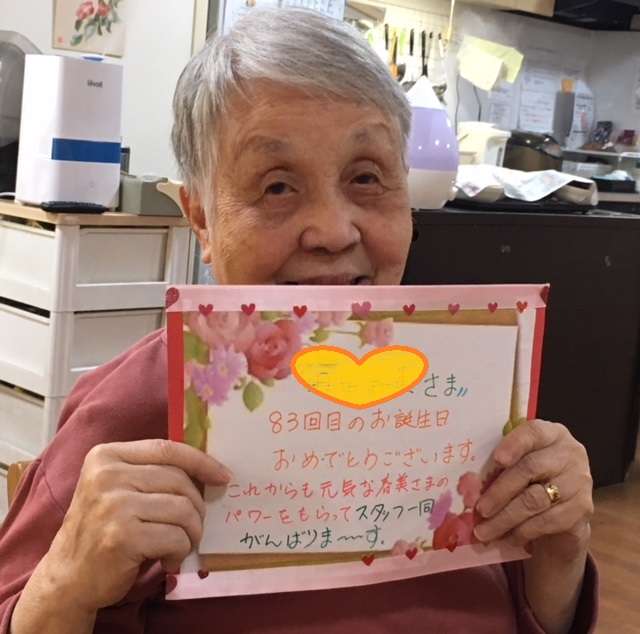 さま〃
83回目のお誕生日
おめでとうございます。
これからも元気な春美さまの
パワーをもらってスタッフ一同
がんばりま〜〜す。